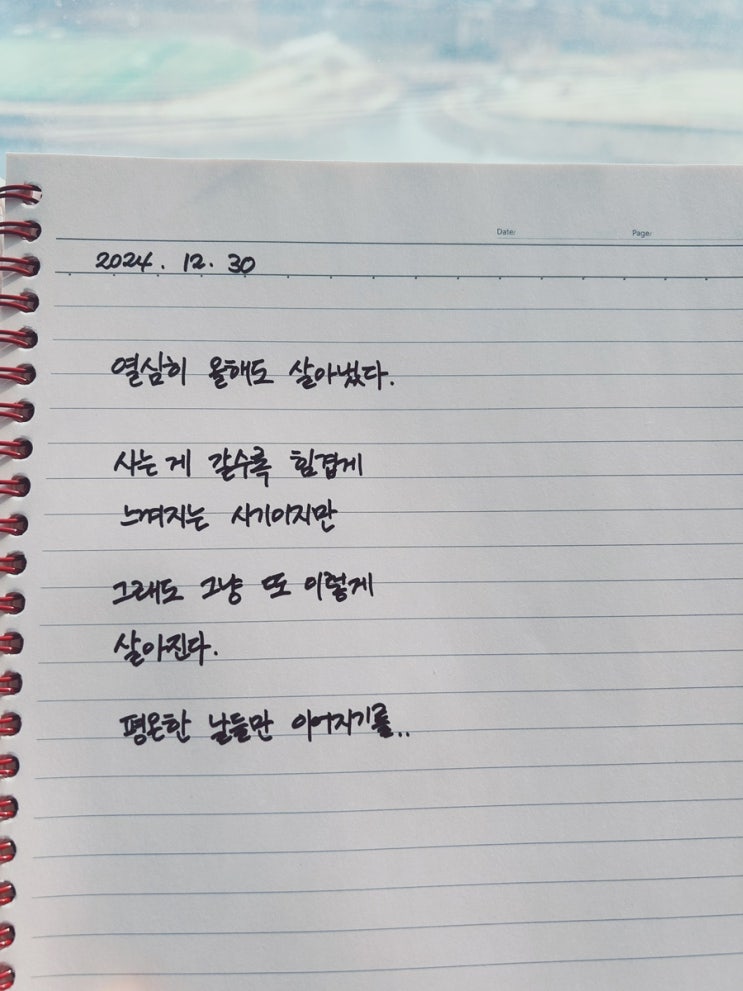 Date/ Page/
2024. 12. 30
열심히 올해도 살아냈다.
사는 게 갈수록 힘겹게
느껴지는 시기이지만
그래도 그냥 또 이렇게
살아진다.
평온한 날들만 이어지기를..